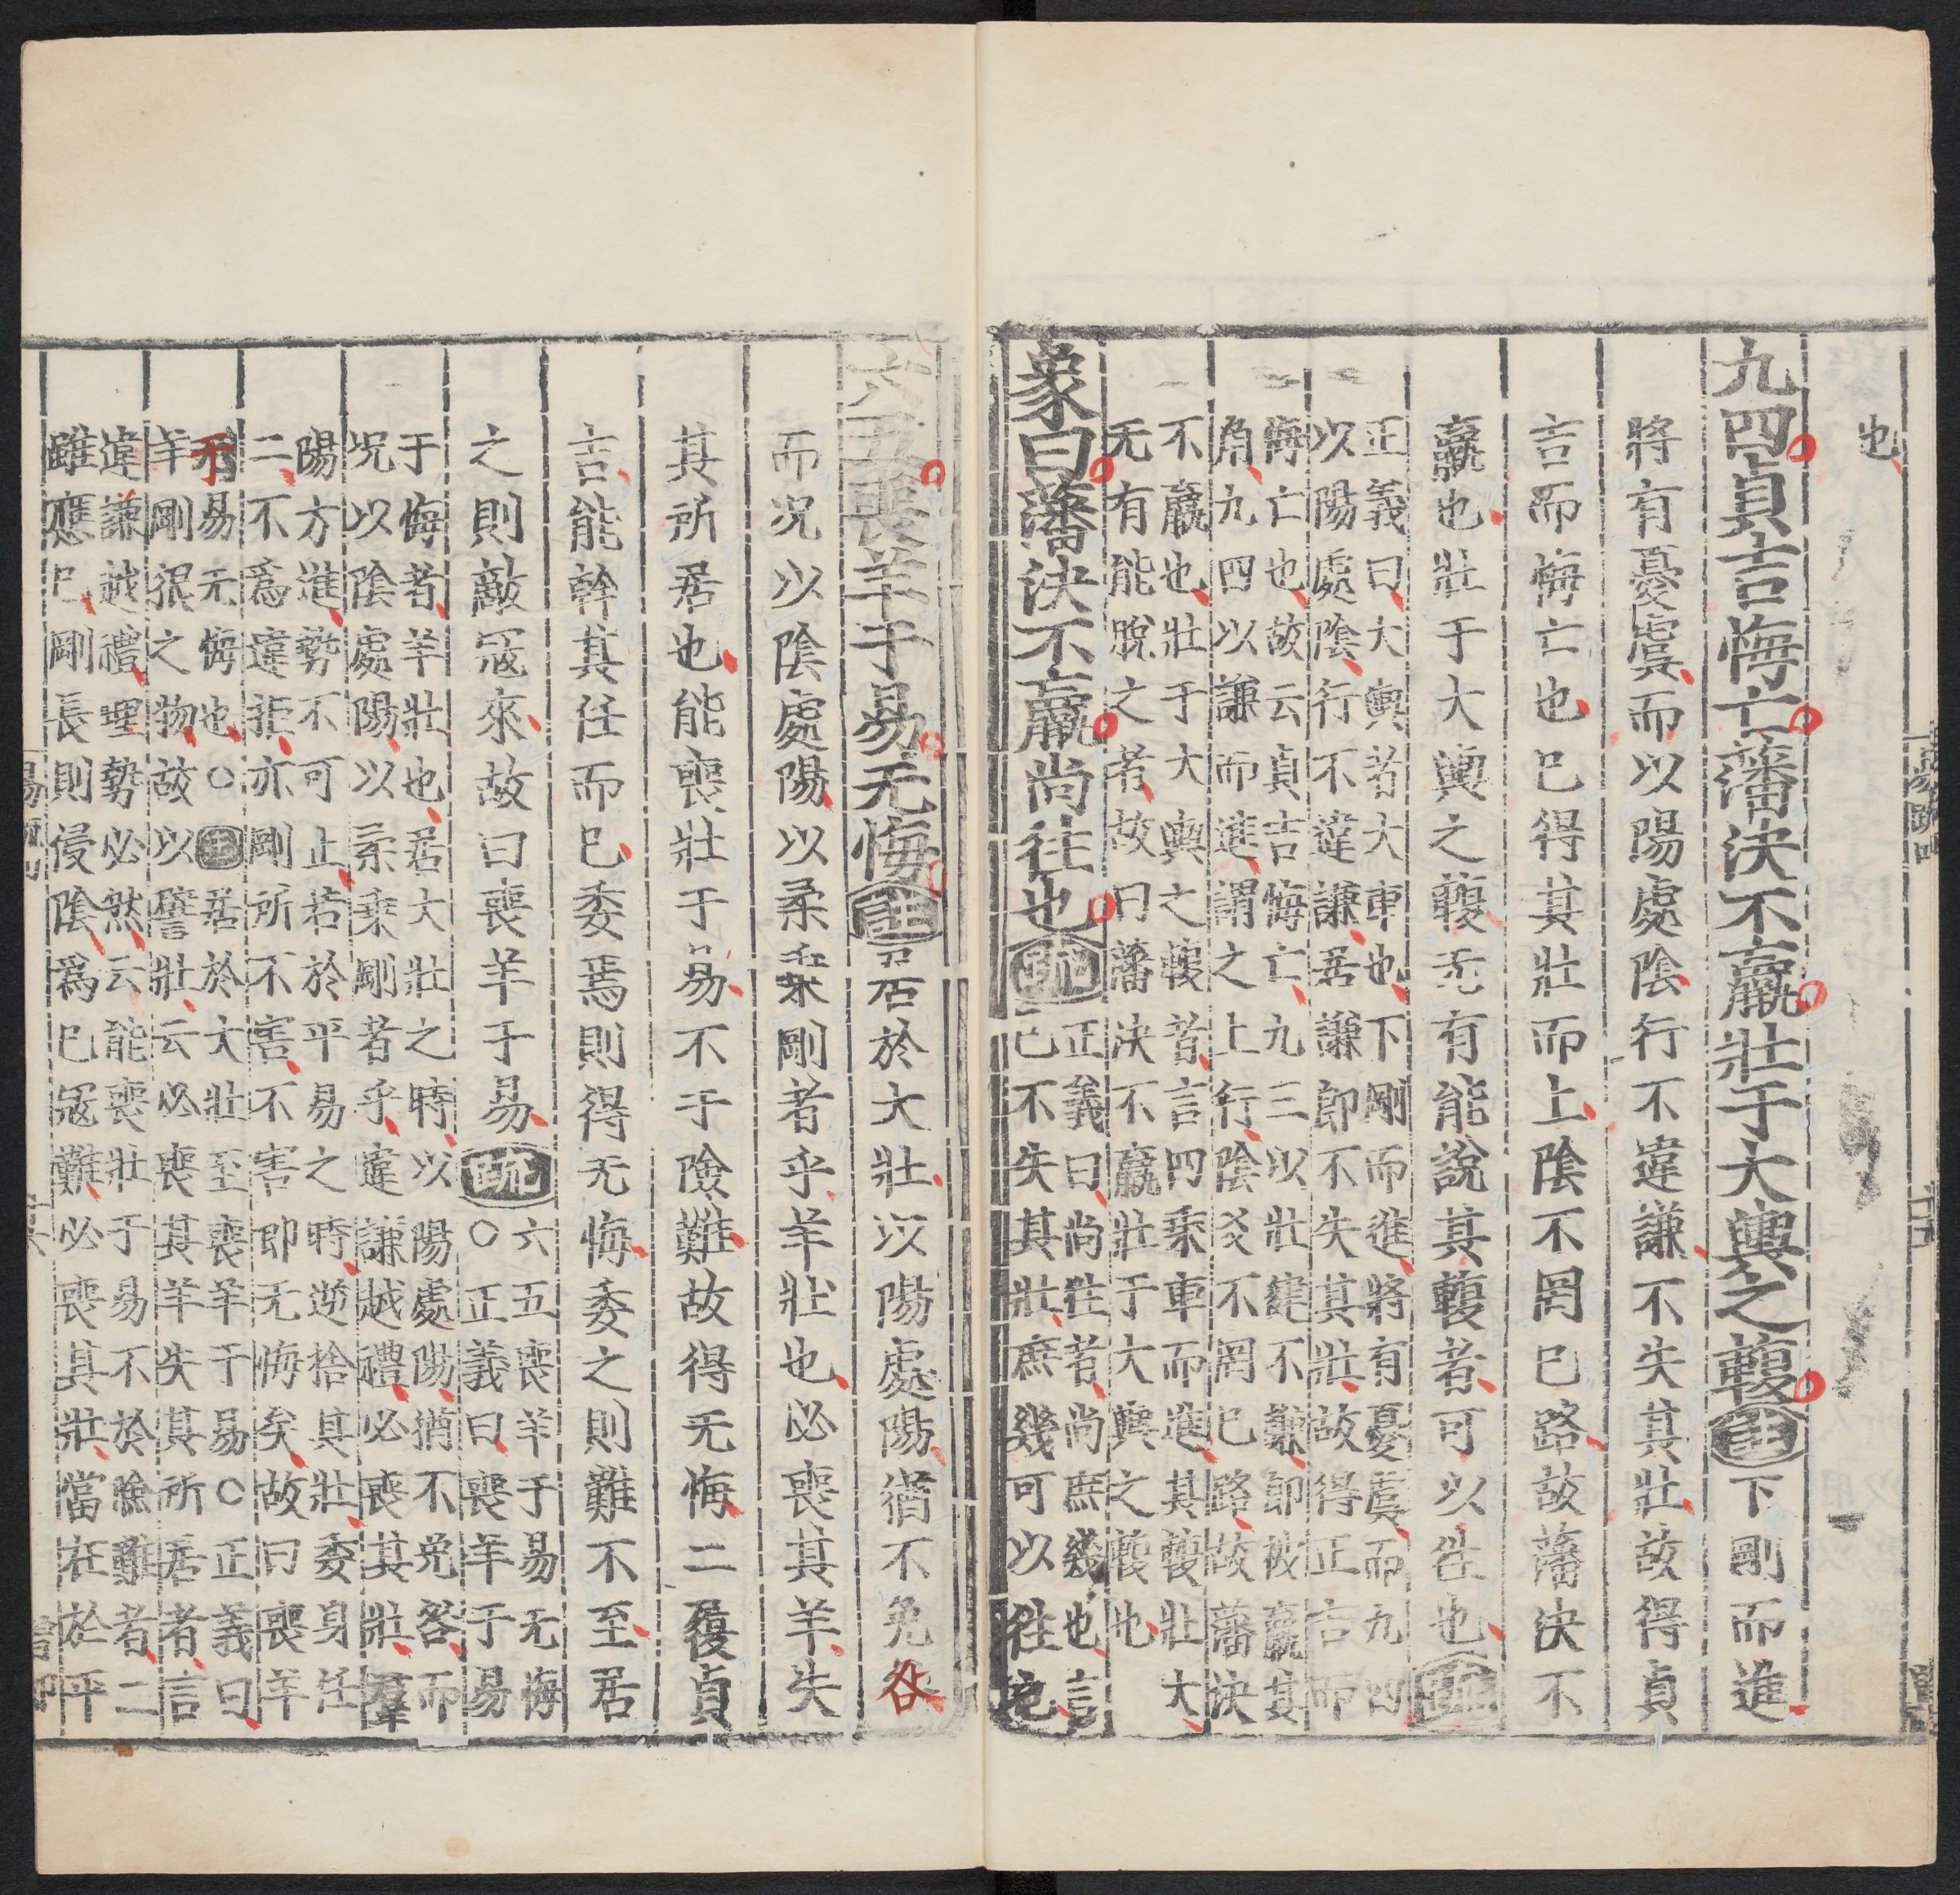 也
九四貞吉悔亡藩決不羸壯于大輿之輹注下剛而進
將有憂虞而以陽處陰行不違謙不失其壯故得貞
吉而悔亡也已得其壯而上陰不罔已路故藩決不
羸也壯于大輿之輹无有能說其輹者可以往也疏
正義曰大輿者大車也下剛而進將有憂虞而九四
以陽處陰行不違謙居謙即不失其壯故得正吉而
悔亡也故云貞吉悔亡九三以壯健不謙即被羸其
角九四以謙而進謂之上行陰爻不罔已路故藩決
不羸也壯于大輿之輹者言四乘車而進其輹壯大
无有能脫之者故曰藩決不羸壯于大輿之輹也
象曰藩決不羸尚往也疏正義曰尚往者尚庶幾也言
已不失其壯庶幾可以往也
六五喪羊于易无悔注居於大壯以陽處陽猶不免咎
而况以陰處陽以柔乘剛者乎羊壯也必喪其羊失
其所居也能喪壯于易不于險難故得无悔二履貞
吉能幹其任而已委焉則得无悔委之則難不至居
之則敵冦來故曰喪羊于易疏六五喪羊于易无悔
○正義曰喪羊于易
于悔者羊壯也居大壯之時以陽處陽猶不免咎而
况以陰處陽以柔乘剛者乎違謙越禮必喪其壯羣
陽方進勢不可止若於平易之時逆捨其壯委身任
二不爲違拒亦剛所不害不害即无悔矣故曰喪羊
于易无悔也○注居於大壯至喪羊于易○正義曰
羊剛狠之物故以譬壯云必喪其羊失其所居者言
違謙越禮理勢必然云能喪壯于易不於險難者二
雖應已剛長則侵陰爲已冦難必喪其壯當在於平